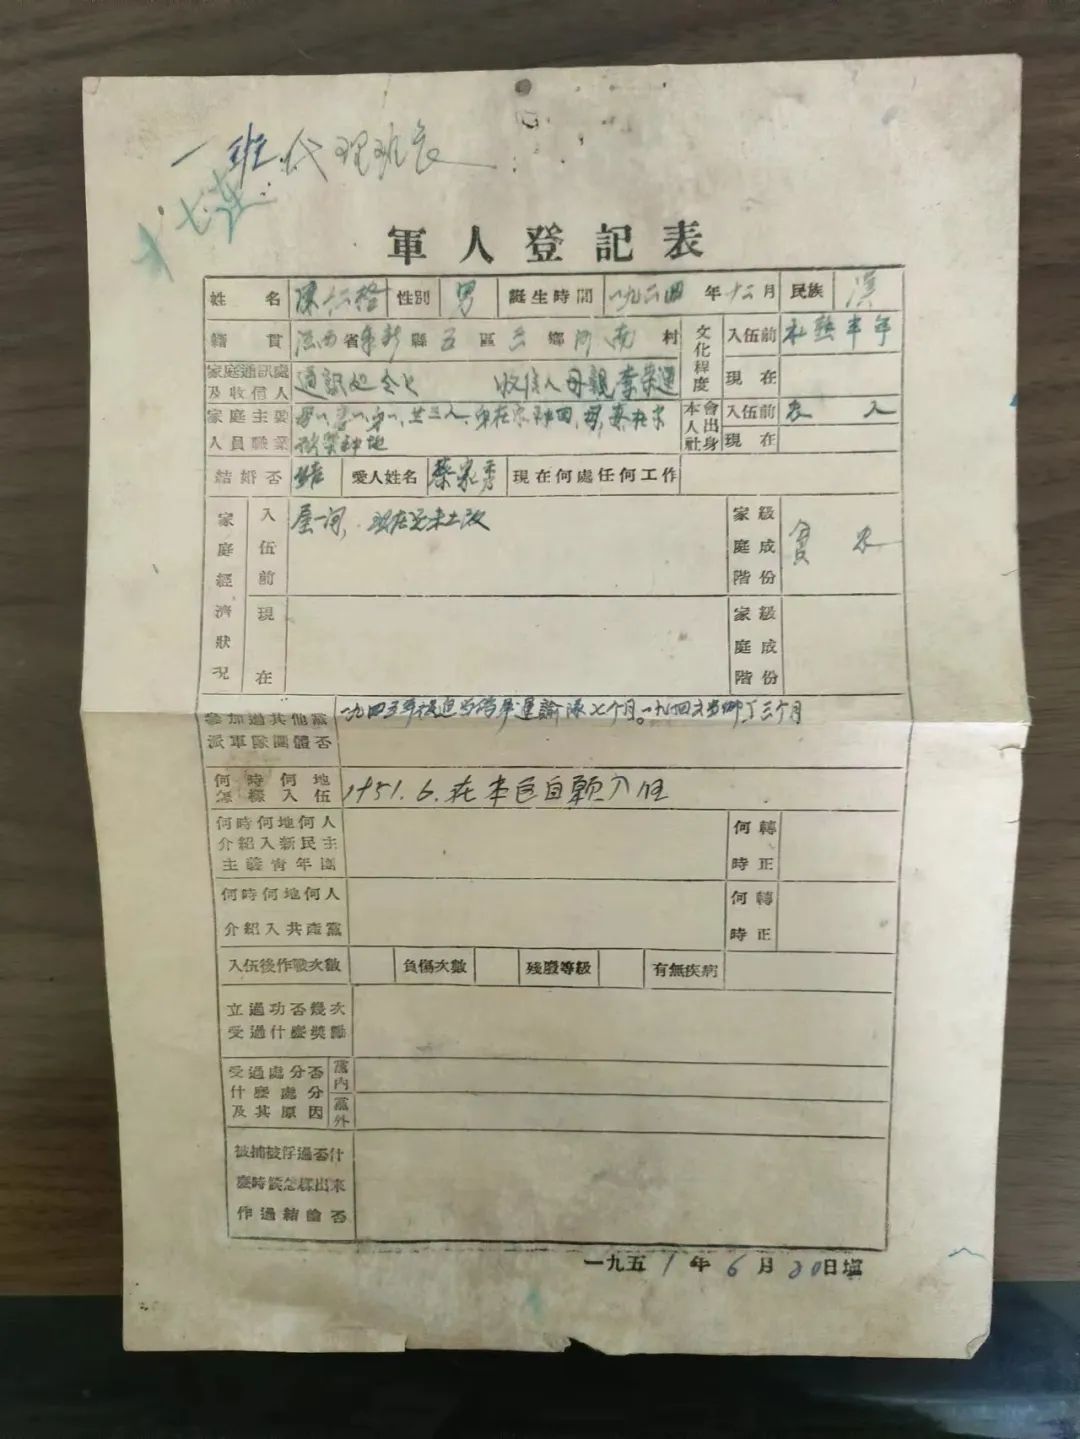 一班代理班长
七连
軍人登記表
姓名 陳仁 性別 男 誕生時間 一九二四年十二月 民族 漢
籍貫 江西省奉新縣五區三鄉河南村 文化程度 入伍前 私塾半年
現在
家庭通訊處及收信人 通訊处仝上 收信人母親
家庭主要人員職業 共三人 种地
本人社會出身 入伍前 农人
現在
結婚否 愛人姓名 蔡家秀 現在何處任何工作
家庭經濟狀況 入伍前 屋一间,现在还未土改 家庭階級成份 貧农
現在 家庭階級成份
參加過其他黨派軍隊團體否 一九四五年被迫当蒋军運諭隊七个月。一九四六当乡丁三个月
何時何地怎樣入伍 1951.6.在本区自願入伍
何時何地何人介紹入新民主主義青年團 何時轉正
何時何地何人介紹入共產黨 何時轉正
入伍後作戰次數 負傷次數 残廢等級 有無疾病
立過功否幾次受過什麼獎勵
受過處分否什麼處分及其原因 黨內
黨外
被捕被俘過否什麼時候怎樣出來作過結論否
一九五1年6月20日填